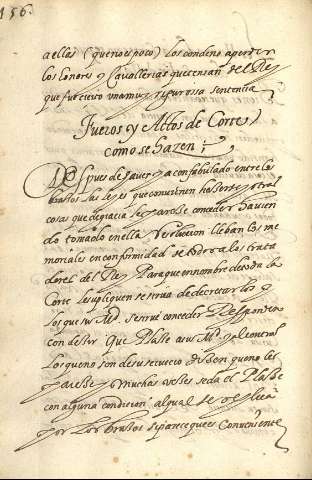 156.
a ellos (que no es poco) los condeno a perder
los honores y Cavallerias que tenian del Rey
que fue cierto una muy rigurossa sentencia
Fueros y Actos de Cortes
como se hazen;
Despues de haverse confabulado entre los
brassos las leyes que convienen hasserse y otras
cosas que de gracia se han de conceder havien
do tomado en ella Resolucion lleban los me
moriales en conformidad de todos a los trata
dores del Rey Para que en nombre de toda la
Corte le supliquen se sirva de decretarlos y
los que su Md. se sirve conceder Responden
con desir Que Plasse a su Md. y al contrario
los que no son de su servicio disen que no le
paresse y muchas veses se da el Plasse
con alguna condicion al qual se replica
por los brassos si paresse que es Conveniente